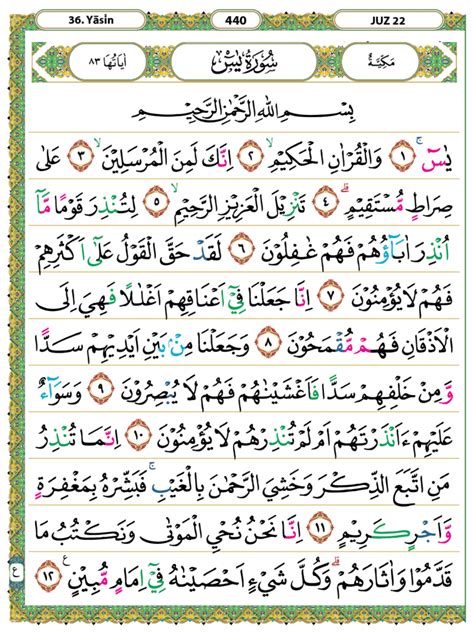 36. Yāsin 440 JUZ 22
مَكِّيَّةٌ سُوْرَةُ يٰسٓ اٰيَاتُهَا ٨٣
بِسْمِ اللّٰهِ الرَّحْمٰنِ الرَّحِيْمِ
يٰسٓ ۚ ١ وَالْقُرْاٰنِ الْحَكِيْمِ ۙ ٢ اِنَّكَ لَمِنَ الْمُرْسَلِيْنَ ۙ ٣ عَلٰى
صِرَاطٍ مُّسْتَقِيْمٍ ۗ ٤ تَنْزِيْلَ الْعَزِيْزِ الرَّحِيْمِ ۙ ٥ لِتُنْذِرَ قَوْمًا مَّآ
اُنْذِرَ اٰبَاۤؤُهُمْ فَهُمْ غٰفِلُوْنَ ٦ لَقَدْ حَقَّ الْقَوْلُ عَلٰٓى اَكْثَرِهِمْ
فَهُمْ لَا يُؤْمِنُوْنَ ٧ اِنَّا جَعَلْنَا فِيْٓ اَعْنَاقِهِمْ اَغْلٰلًا فَهِيَ اِلَى
الْاَذْقَانِ فَهُمْ مُّقْمَحُوْنَ ٨ وَجَعَلْنَا مِنْۢ بَيْنِ اَيْدِيْهِمْ سَدًّا
وَّمِنْ خَلْفِهِمْ سَدًّا فَاَغْشَيْنٰهُمْ فَهُمْ لَا يُبْصِرُوْنَ ٩ وَسَوَاۤءٌ
عَلَيْهِمْ ءَاَنْذَرْتَهُمْ اَمْ لَمْ تُنْذِرْهُمْ لَا يُؤْمِنُوْنَ ١٠ اِنَّمَا تُنْذِرُ
مَنِ اتَّبَعَ الذِّكْرَ وَخَشِيَ الرَّحْمٰنَ بِالْغَيْبِ ۚ فَبَشِّرْهُ بِمَغْفِرَةٍ
وَّاَجْرٍ كَرِيْمٍ ١١ اِنَّا نَحْنُ نُحْيِ الْمَوْتٰى وَنَكْتُبُ مَا
قَدَّمُوْا وَاٰثَارَهُمْ ۗ وَكُلَّ شَيْءٍ اَحْصَيْنٰهُ فِيْٓ اِمَامٍ مُّبِيْنٍ ࣖ ١٢
ع